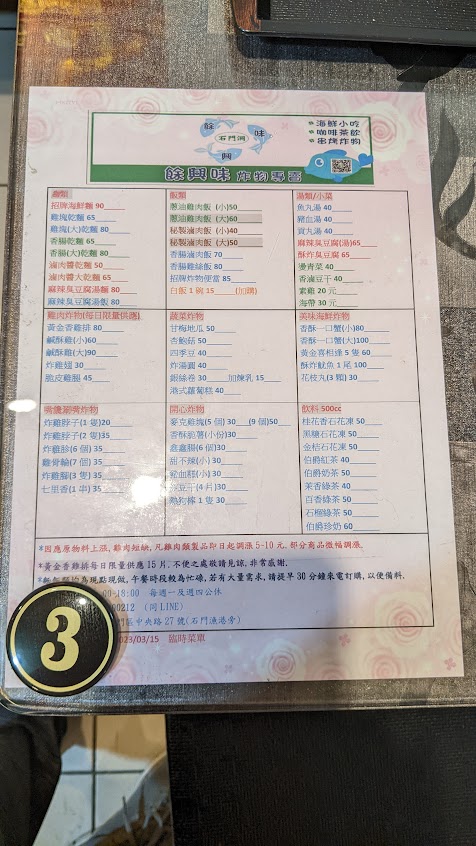 餘 味
石門洞
興
海鮮小吃
咖啡茶飲
串烤炸物
餘興味 炸物專賣
麵類
招牌海鮮麵 90
雞塊乾麵 65
雞塊(大)乾麵 80
香腸乾麵 65
香腸(大)乾麵 80
滷肉醬乾麵 50
滷肉醬大乾麵 65
麻辣臭豆腐湯麵 80
麻辣臭豆腐湯飯 80
飯類
蔥油雞肉飯 (小)50
蔥油雞肉飯 (大)60
秘製滷肉飯 (小)40
秘製滷肉飯 (大)50
香腸滷肉飯 70
香腸雞絲飯 80
招牌炸物便當 85
白飯 1 碗 15 (加購)
湯類/小菜
魚丸湯 40
豬血湯 40
貢丸湯 40
麻辣臭豆腐(湯)65
酥炸臭豆腐 65
燙青菜 40
香滷豆干 40
素雞 20 元
海帶 30 元
雞肉炸物(每日限量供應)
黃金香雞排 80
鹹酥雞(小)60
鹹酥雞(大)90
炸雞翅 30
脆皮雞腿 45
蔬菜炸物
甘梅地瓜 50
杏鮑菇 50
四季豆 40
炸湯圓 40
銀絲卷 30 加煉乳 15
港式蘿蔔糕 40
美味海鮮炸物
香酥一口蟹(小)80
香酥一口蟹(大)100
黃金喜相逢 5 隻 60
酥炸魷魚 1 尾 100
花枝丸(3 顆) 30
炸雞脖子(1 隻)20
炸雞脖子(2 隻)35
炸雞胗(6 個) 35
雞脊輪(7 個) 35
炸雞腳(3 隻) 35
七里香(1 串) 35
開心炸物
麥克雞塊(5 個) 30 (9 個)50
香酥脆薯(小份)30
鑫鑫腸(6 個)30
甜不辣(小) 30
豬血糕(小) 30
炸豆干(4 片)30
熱狗棒 1 隻 30
飲料 500cc
桂花香石花凍 50
黑糖石花凍 50
金桔石花凍 50
伯爵紅茶 40
伯爵奶茶 50
茉香綠茶 40
百香綠茶 50
石榴綠茶 50
伯爵珍奶 60
*因應原物料上漲, 雞肉短缺, 凡雞肉類製品即日起調漲 5-10 元. 部分商品微幅調漲.
*黃金香雞排每日限量供應 15 片. 不便之處敬請見諒, 非常感謝.
均為現點現做, 午餐時段較為忙碌, 若有大量需求, 請提早 30 分鐘來電訂購, 以便備料.
:00-18:00 每週一及週四公休
60212 (同 LINE)
門區中央路 27 號(石門漁港旁)
2023/03/15 臨時菜單
3